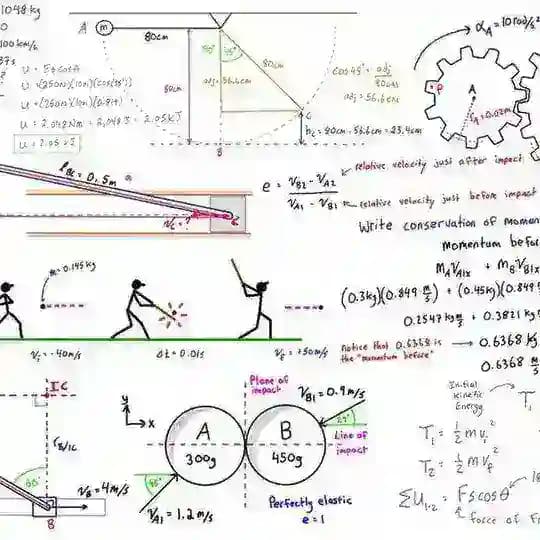 1048 kg
100 km/s
37s
U = Fd cosθ
U = (250N)(10m)(cos35°)
U = 2,048 Nm = 2,048 J = 2.05 kJ
U = 2.05 kJ
A
m
80cm
80cm
45°
80cm
adj = 56.6cm
C
B
cos45° = adj/80cm
adj = 56.6cm
h₂ = 80cm - 56.6cm = 23.4cm
α_A = 10 rad/s²
P
A
r_A = 0.02m
l_BC = 0.5m
V_C = ?
C
e = (V_B2 - V_A2)/(V_A1 - V_B1)
relative velocity just after impact
relative velocity just before impact
Write conservation of momen
momentum befor
m_A V_A1x + m_B V_B1x
(0.3kg)(0.849 m/s) + (0.45kg)(0.849
0.2547 kg m/s + 0.3821 kg
notice that 0.6368 is
the "momentum before"
0.6368 k
0.6368
m = 0.145kg
V₁ = -40m/s
Δt = 0.01s
V_f = +50m/s
IC
r_B/IC
B
V_B = 4m/s
y
x
Plane of
impact
V_B1 = 0.9m/s
A
300g
B
450g
Line of
impact
45°
V_A1 = 1.2m/s
Perfectly elastic
e = 1
Initial
Kinetic
Energy
T₁
T₁ = 1/2 m v₁²
T₂ = 1/2 m v_f²
ΣU₁₋₂ = F s cosθ
force of